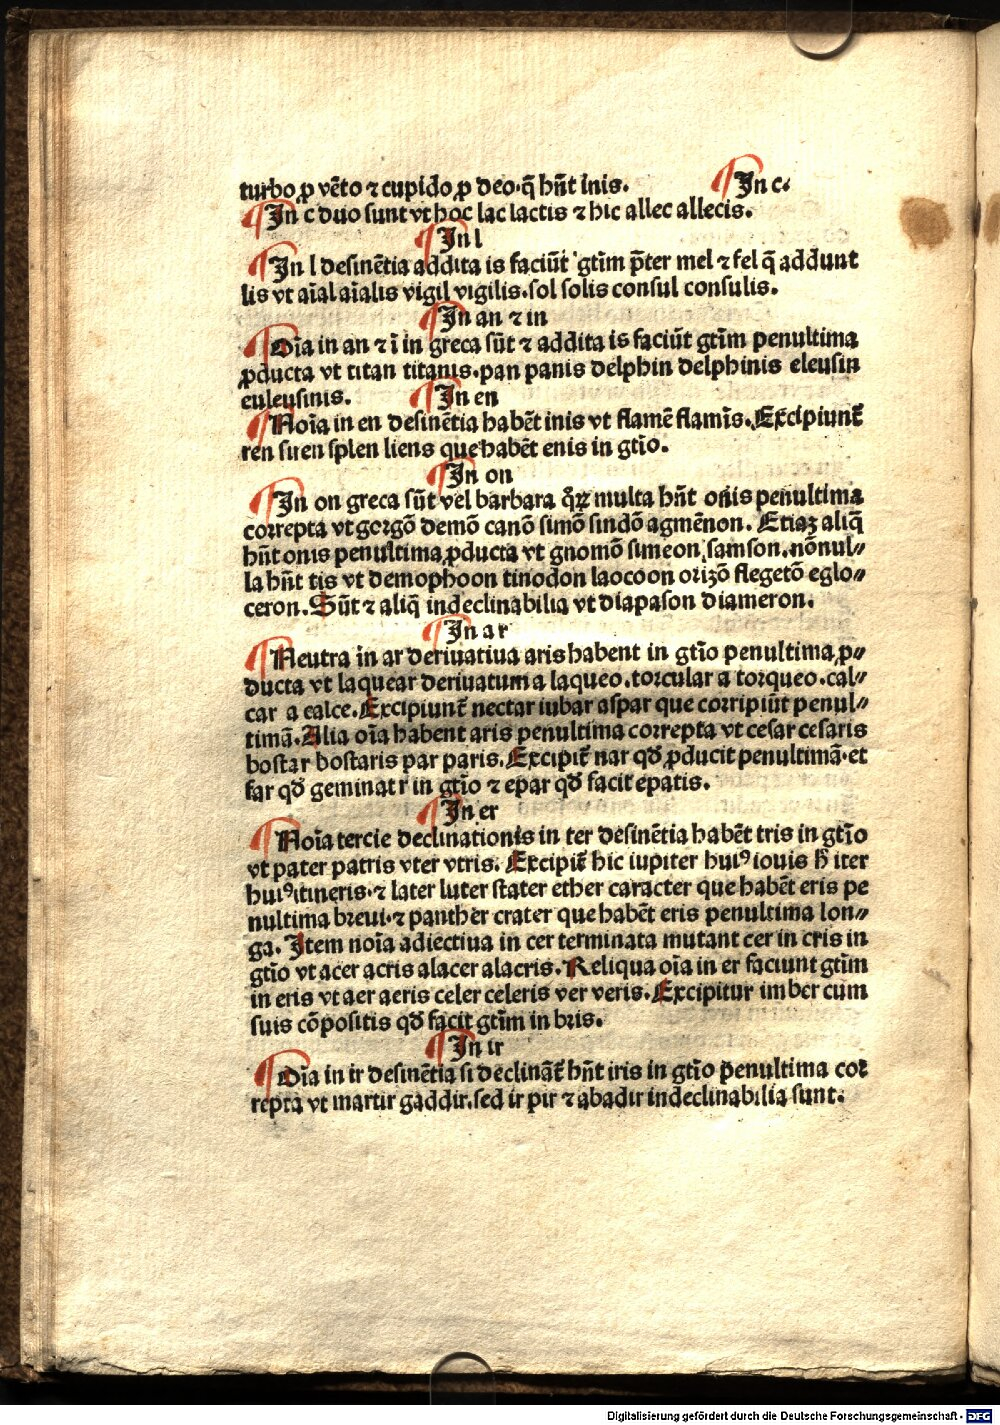 turbo ꝓ vẽto ⁊ cupido ꝓ deo· q̃ hñt inis. ¶ In c.
¶ In c duo sunt vt hoc lac lactis ⁊ hic allec allecis.
¶ In l
¶ In l desinẽtia addita is faciũt gtĩm p̃ter mel ⁊ fel q̃ addunt
lis vt aĩal aĩalis vigil vigilis.sol solis consul consulis.
¶ In an ⁊ in
¶ Oĩa in an ⁊ ĩ in greca sũt ⁊ addita is faciũt gtĩm penultima
ꝓducta vt titan titanis.pan panis delphin delphinis eleusin
euleusinis. ¶ In en
¶ Noĩa in en desinẽtia habẽt inis vt flamẽ flamĩs. Excipiunt̃
ren siren splen liens que habẽt enis in gtĩo.
¶ In on
¶ In on greca sũt vel barbara q̃ꝝ multa hñt onis penultima
correpta vt gorgõ demõ canõ simõ sindõ agmẽnon. Etiaꝫ aliq̃
hñt onis penultima ꝓducta vt gnomõ simeon samson.nõnul⸗
la hñt tis vt demophoon tinodon laocoon orizõ flegetõ eglo⸗
ceron. Sũt ⁊ aliq̃ indeclinabilia vt diapason diameron.
¶ In ar
¶ Neutra in ar deriuatiua aris habent in gtĩo penultima ꝓ⸗
ducta vt laquear deriuatum a laqueo.torcular a torqueo.cal⸗
car a calce. Excipiunt̃ nectar iubar aspar que corripiũt penul⸗
timã. Alia oĩa habent aris penultima correpta vt cesar cesaris
bostar bostaris par paris. Excipit̃ nar qđ ꝓducit penultimã·et
far qđ geminat r in gtĩo ⁊ epar qđ facit epatis.
¶ In er
¶ Noĩa tercie declinationis in ter desinẽtia habẽt tris in gtĩo
vt pater patris vter vtris. Excipit̃ hic iupiter huiꝰ iouis h̃ iter
huiꝰ itineris·⁊ later luter stater ether caracter que habẽt eris pe
nultima breui·⁊ panther crater que habẽt eris penultima lon⸗
ga. Item noĩa adiectiua in cer terminata mutant cer in cris in
gtĩo vt acer acris alacer alacris. Reliqua oĩa in er faciunt gtĩm
in eris vt aer aeris celer celeris ver veris. Excipitur imber cum
suis cõpositis qđ facit gtĩm in bris.
¶ In ir
¶ Oĩa in ir desinẽtia si declinãt̃ hñt iris in gtĩo penultima cor
repta vt martir gaddir.sed ir pir ⁊ abadir indeclinabilia sunt.
Digitalisierung gefördert durch die Deutsche Forschungsgemeinschaft - DFG